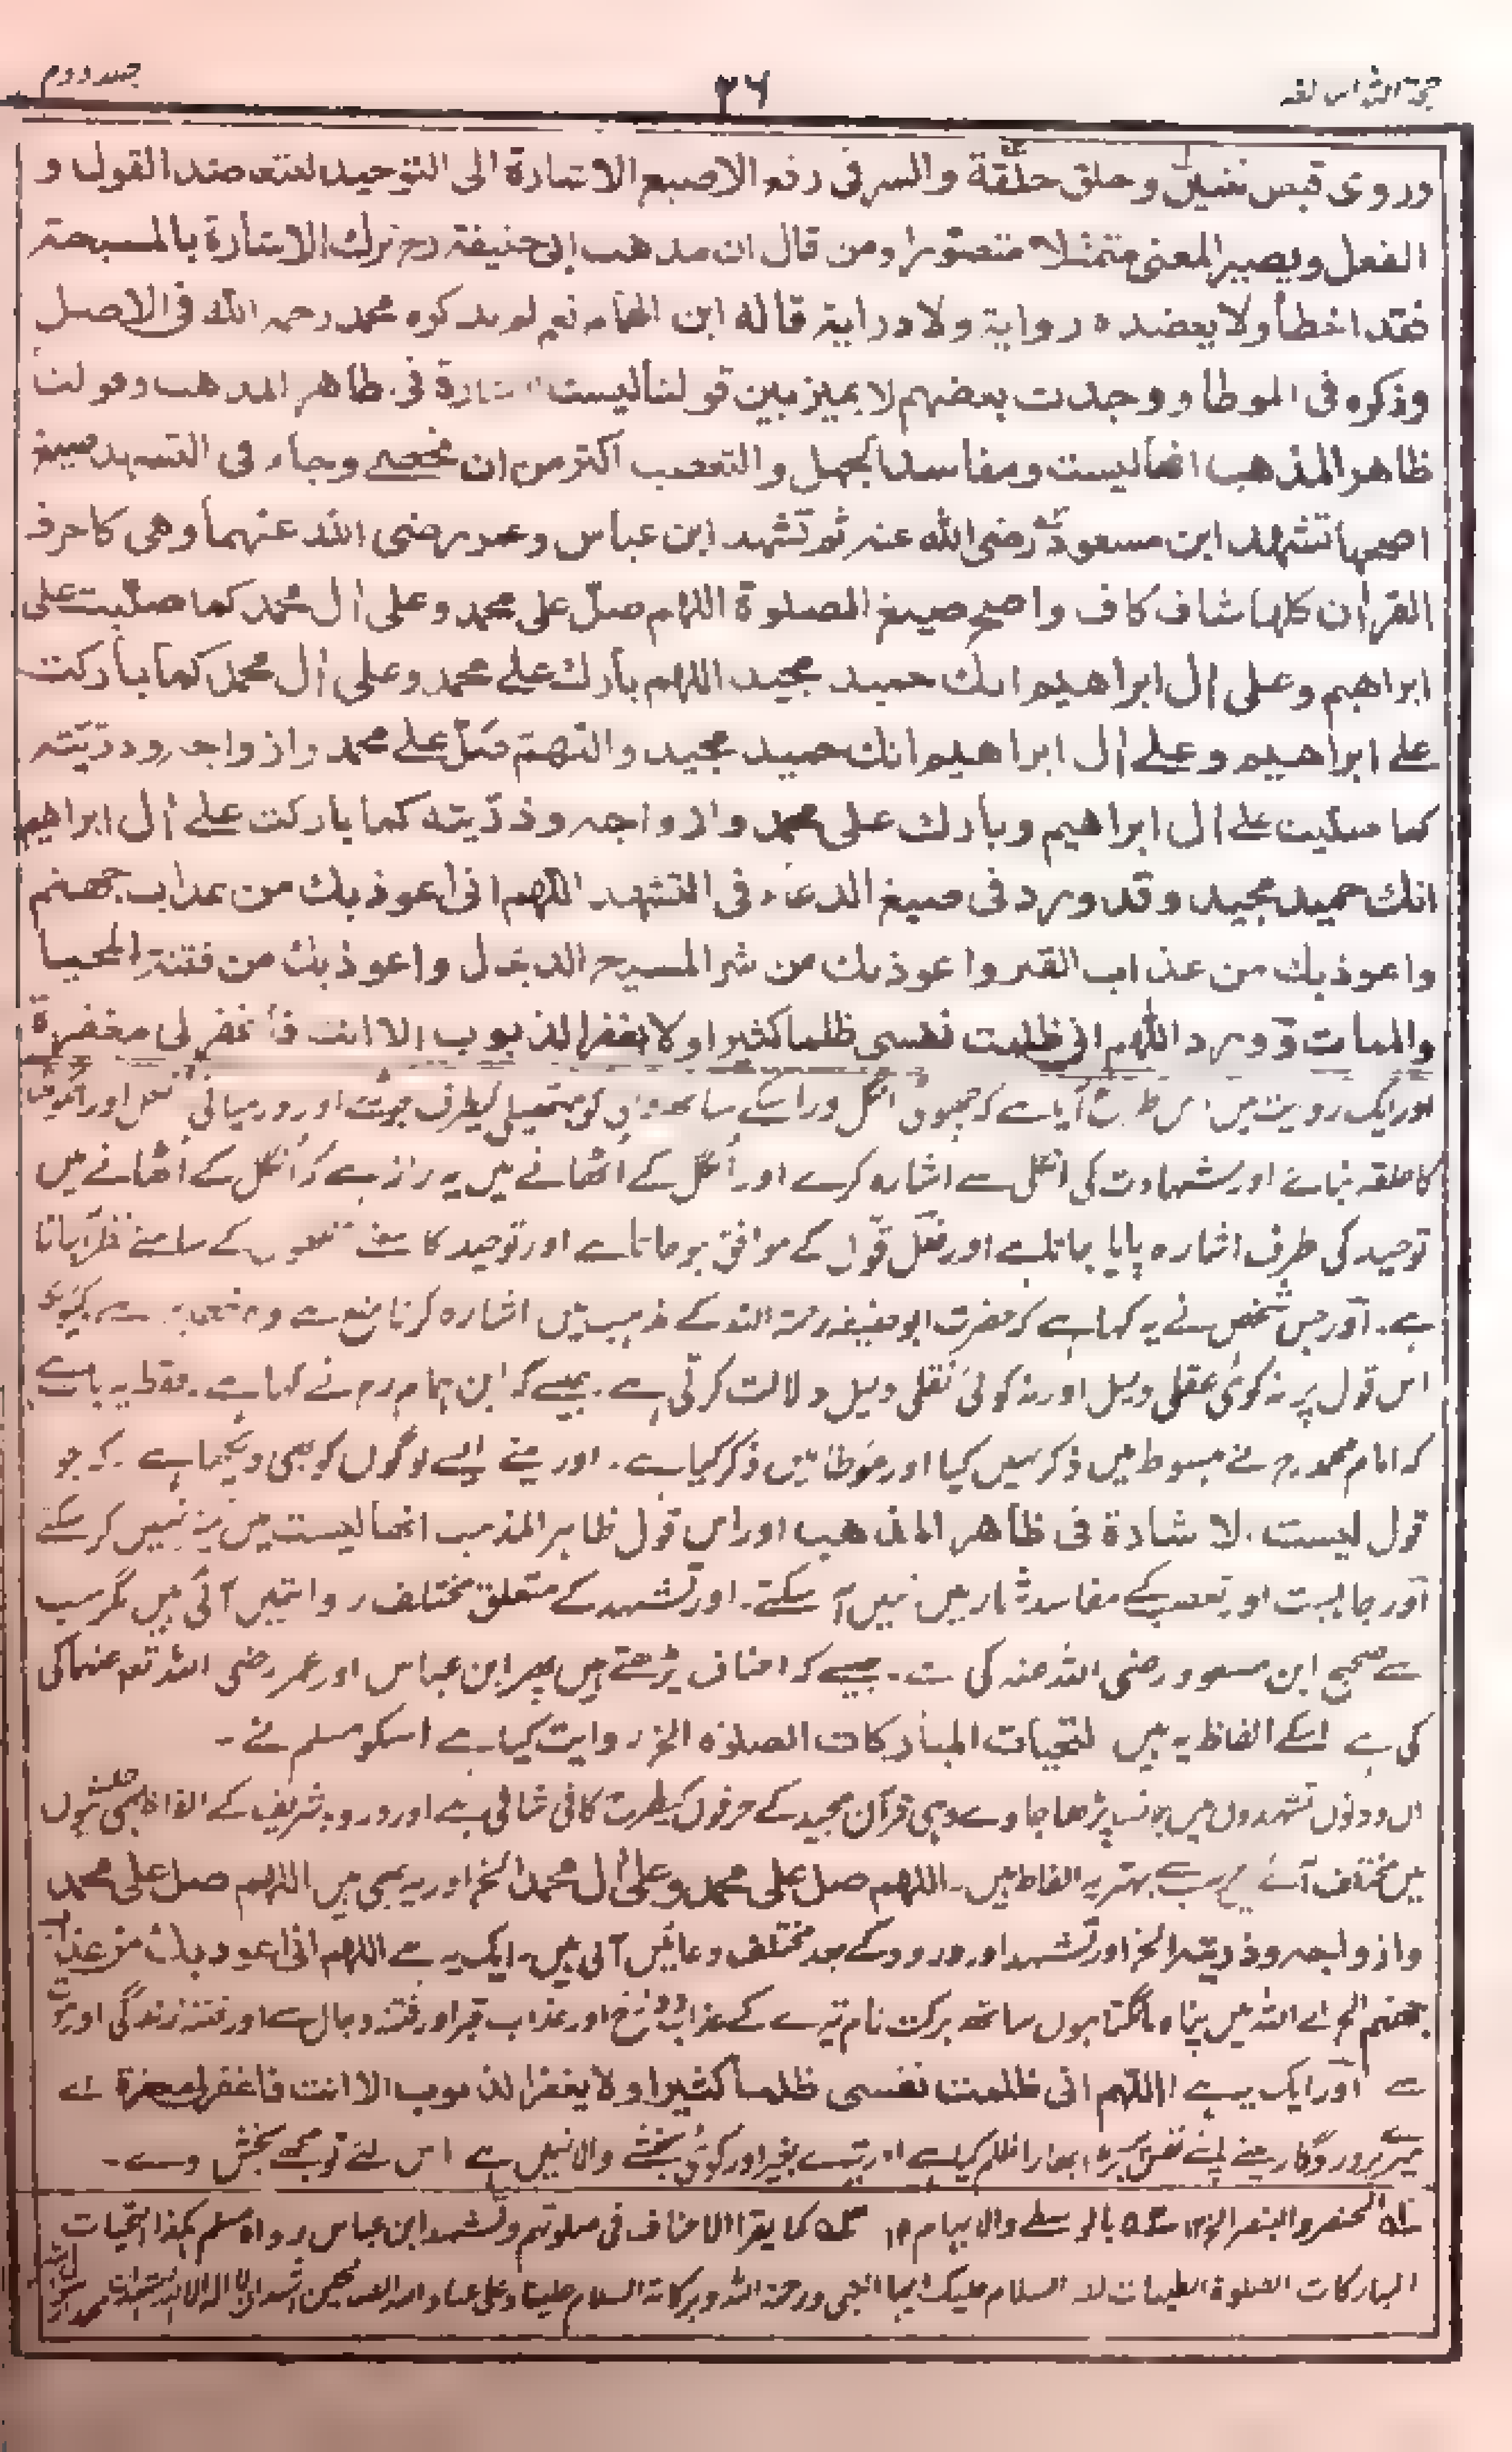 حصہ دوم ٢٦ حجۃ اللہ البالغہ
وروی قبض ثنتین وحلق حلقة والسر فی رفع الاصبع الاشارة الی التوحید القول و
الفعل ویصیر المعنی متمثلا متصورا ومن قال ان مذهب ابی حنیفة رح ترك الاشارة بالمسبحة
فقد اخطأ ولا یعضده روایة ولا درایة قاله ابن الهمام نعم لم یذکره محمد رحمه الله فی الاصل
وذکره فی الموطا ووجدت بعضهم لا یمیز بین قولنا لیست الاشارة فی ظاهر المذهب وقولنا
ظاهر المذهب انها لیست ومفاسد الجهل والتعصب اکثر من ان تحصے وجاء فی التشهد صیغ
اصحها تشهد ابن مسعود رضی الله عنه ثم تشهد ابن عباس وعمر رضی الله عنهما وهی کاحرف
القرآن کلها شاف کاف واصح صیغ الصلوة اللهم صل علی محمد وعلی آل محمد کما صلیت علی
ابراهیم وعلی آل ابراهیم انك حمید مجید اللهم بارك علے محمد وعلی آل محمد کما بارکت
علے ابراهیم وعلے آل ابراهیم انك حمید مجید واللهم صل علے محمد وازواجه وذریته
کما صلیت علے آل ابراهیم وبارك علی محمد وازواجه وذریته کما بارکت علے آل ابراهیم
انك حمید مجید وقد ورد فی صیغ الدعاء فی التشهد اللهم انی اعوذ بك من عذاب جهنم
واعوذ بك من عذاب القبر واعوذ بك من شر المسیح الدجال واعوذ بك من فتنة المحیا
والممات وورد اللهم انی ظلمت نفسی ظلما کثیرا ولا یغفر الذنوب الا انت فاغفر لی مغفرة
اور ایک روایت میں اس طرح آیا ہے کہ چھوٹی انگلی اور اسکے ساتھ والی کو ہتھیلی کیطرف موڑے اور درمیانی انگلی اور انگوٹھے
کا حلقہ بنائے اور شہادت کی انگلی سے اشارہ کرے اور اُنگلی کے اُٹھانے میں یہ راز ہے کہ اُنگلی کے اُٹھانے میں
توحید کی طرف اشارہ پایا جاتا ہے اور فعل قول کے موافق ہو جاتا ہے اور توحید کا معنے آنکھوں کے سامنے نظر آجاتا
ہے۔ اور جس شخص نے یہ کہا ہے کہ حضرت ابوحنیفہ رحمۃ اللہ کے مذہب میں اشارہ کرنا منع ہے وہ ہے کیونکہ
اس قول پر نہ کوئی عقلی دلیل اور نہ کوئی نقلی دلیل دلالت کرتی ہے۔ جیسے کہ ابن ہمام رح نے کہا ہے۔ فقط یہ بات ہے
کہ امام محمد رح نے مبسوط میں ذکر نہیں کیا اور موطا میں ذکر کیا ہے۔ اور مینے ایسے لوگوں کو بھی دیکھا ہے۔ کہ جو
قول لیست الاشارة فی ظاهر المذهب اور اس قول ظاہر المذہب انها لیست میں تمیز نہیں کر سکتے
اور جاہلیت اور تعصب کے مفاسد شمار میں نہیں آ سکتے۔ اور تشہد کے متعلق مختلف روایتیں آئی ہیں مگر سب
سے صحیح ابن مسعود رضی اللہ عنہ کی ہے۔ جیسے کہ احناف پڑھتے ہیں پھر ابن عباس اور عمر رضی اللہ تعہ عنہما کی
کی ہے اسکے الفاظ یہ ہیں التحیات المبارکات الصلوٰۃ الخ روایت کیا ہے اسکو مسلم نے۔
ان دونوں تشہدوں میں جونسا پڑھا جاوے وہی قرآن مجید کے حرفوں کیطرح کافی شافی ہے اور درود شریف کے الفاظ بھی حدیثوں
میں مختلف آئے ہیں سب سے بہتر یہ الفاظ ہیں۔ اللهم صل علی محمد وعلی آل محمد الخ اور یہ بھی ہیں اللهم صل علی محمد
وازواجه وذریته الخ اور تشہد اور درود کے بعد مختلف دعائیں آئی ہیں۔ ایک یہ ہے اللهم انی اعوذ بك من عذاب
جهنم الخ اے اللہ میں پناہ مانگتا ہوں ساتھ برکت نام تیرے کے عذاب دوزخ اور عذاب قبر اور فتنہ دجال سے اور فتنہ زندگی اور موت
سے اور ایک یہ ہے اللهم انی ظلمت نفسی ظلما کثیرا ولا یغفر الذنوب الا انت فاغفر لی مغفرة اے
میرے پروردگار مینے اپنے نفس پر بڑا بھارا ظلم کیا ہے اور تیرے بغیر اور کوئی بخشنے والا نہیں ہے اس لئے تو مجھے بخش دے۔
الخنصر والبنصر الخ ١٢ بالوسطے والابهام ١٢ کما یقرا الاحناف فی صلوتهم وتشہد ابن عباس رواہ مسلم ہکذا التحیات
المبارکات الصلوة الطیبات للہ السلام علیک ایها النبی ورحمة اللہ وبرکاتہ السلام علینا وعلی عباد اللہ الصلحین اشہد ان لا الہ الا اللہ